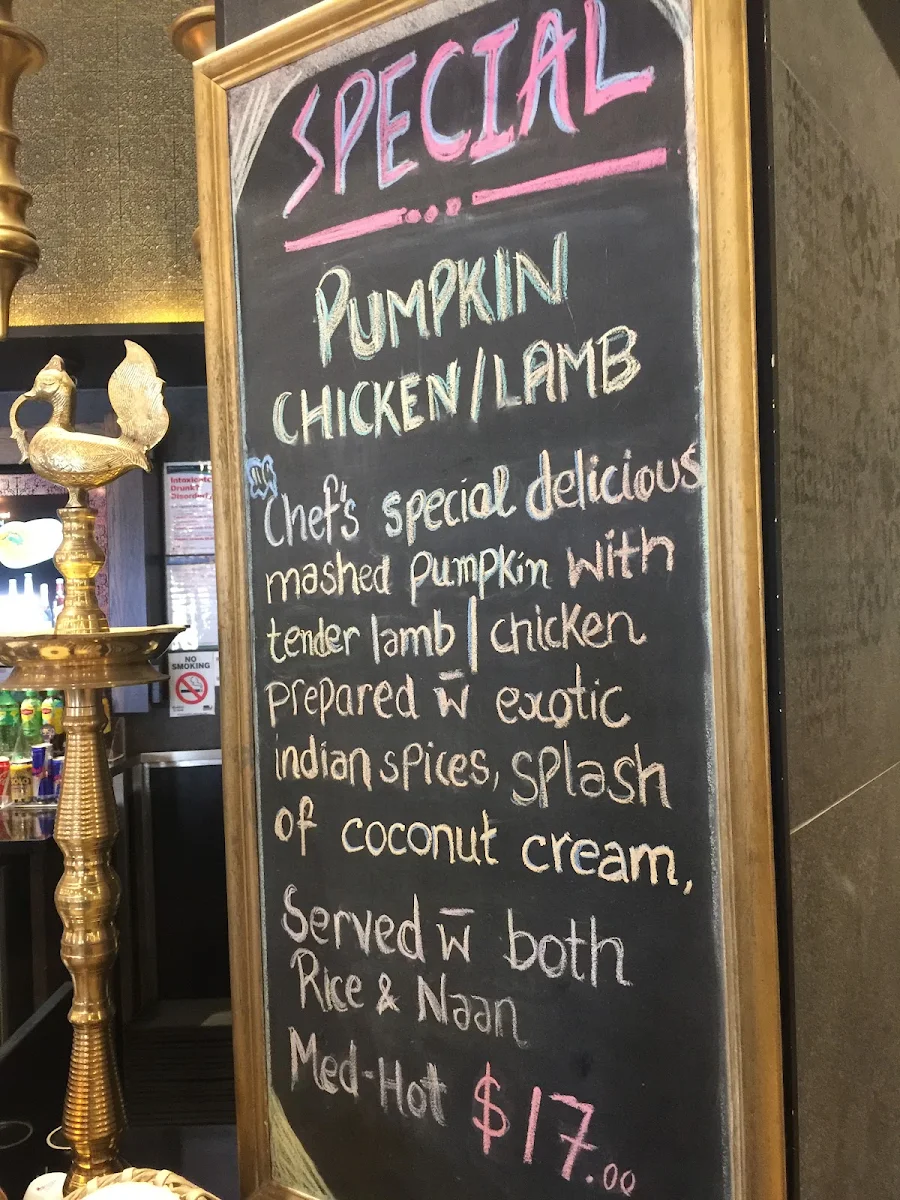 SPECIAL
PUMPKIN
CHICKEN/LAMB
Chef's special delicious
mashed pumpkin with
tender lamb | chicken
prepared w̅ exotic
indian spices, splash
of coconut cream,
Served w̅ both
Rice & Naan
Med-Hot $17.00
Drunk?
NO
SMOKING